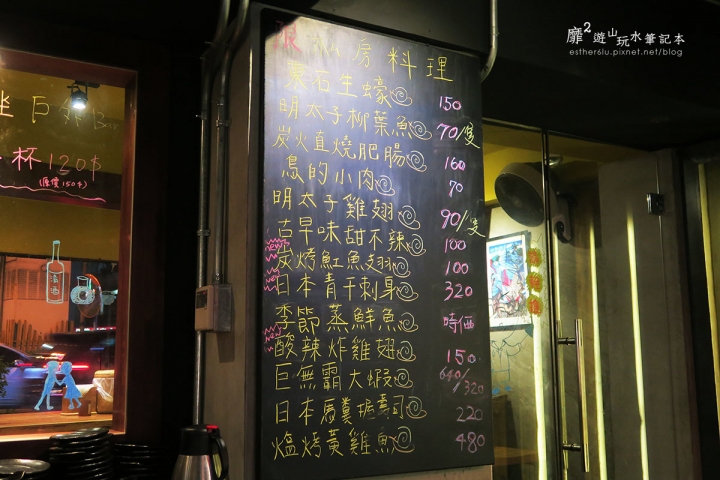 靡²遊山玩水筆記本
esther6lu.pixnet.net/blog
私房料理
東石生蠔 150
明太子柳葉魚 70/隻
炭火直燒肥腸 160
鳥的小肉 70
明太子雞翅 90/隻
古早味甜不辣 100
炭烤魟魚翅 100
日本青干刺身 320
季節蒸鮮魚 時価
酸辣炸雞翅 150
巨無霸大蝦 640/320
日本馬糞握壽司 220
爐烤黃雞魚 480
坐戶外
杯120$
(原價150$)
清酒